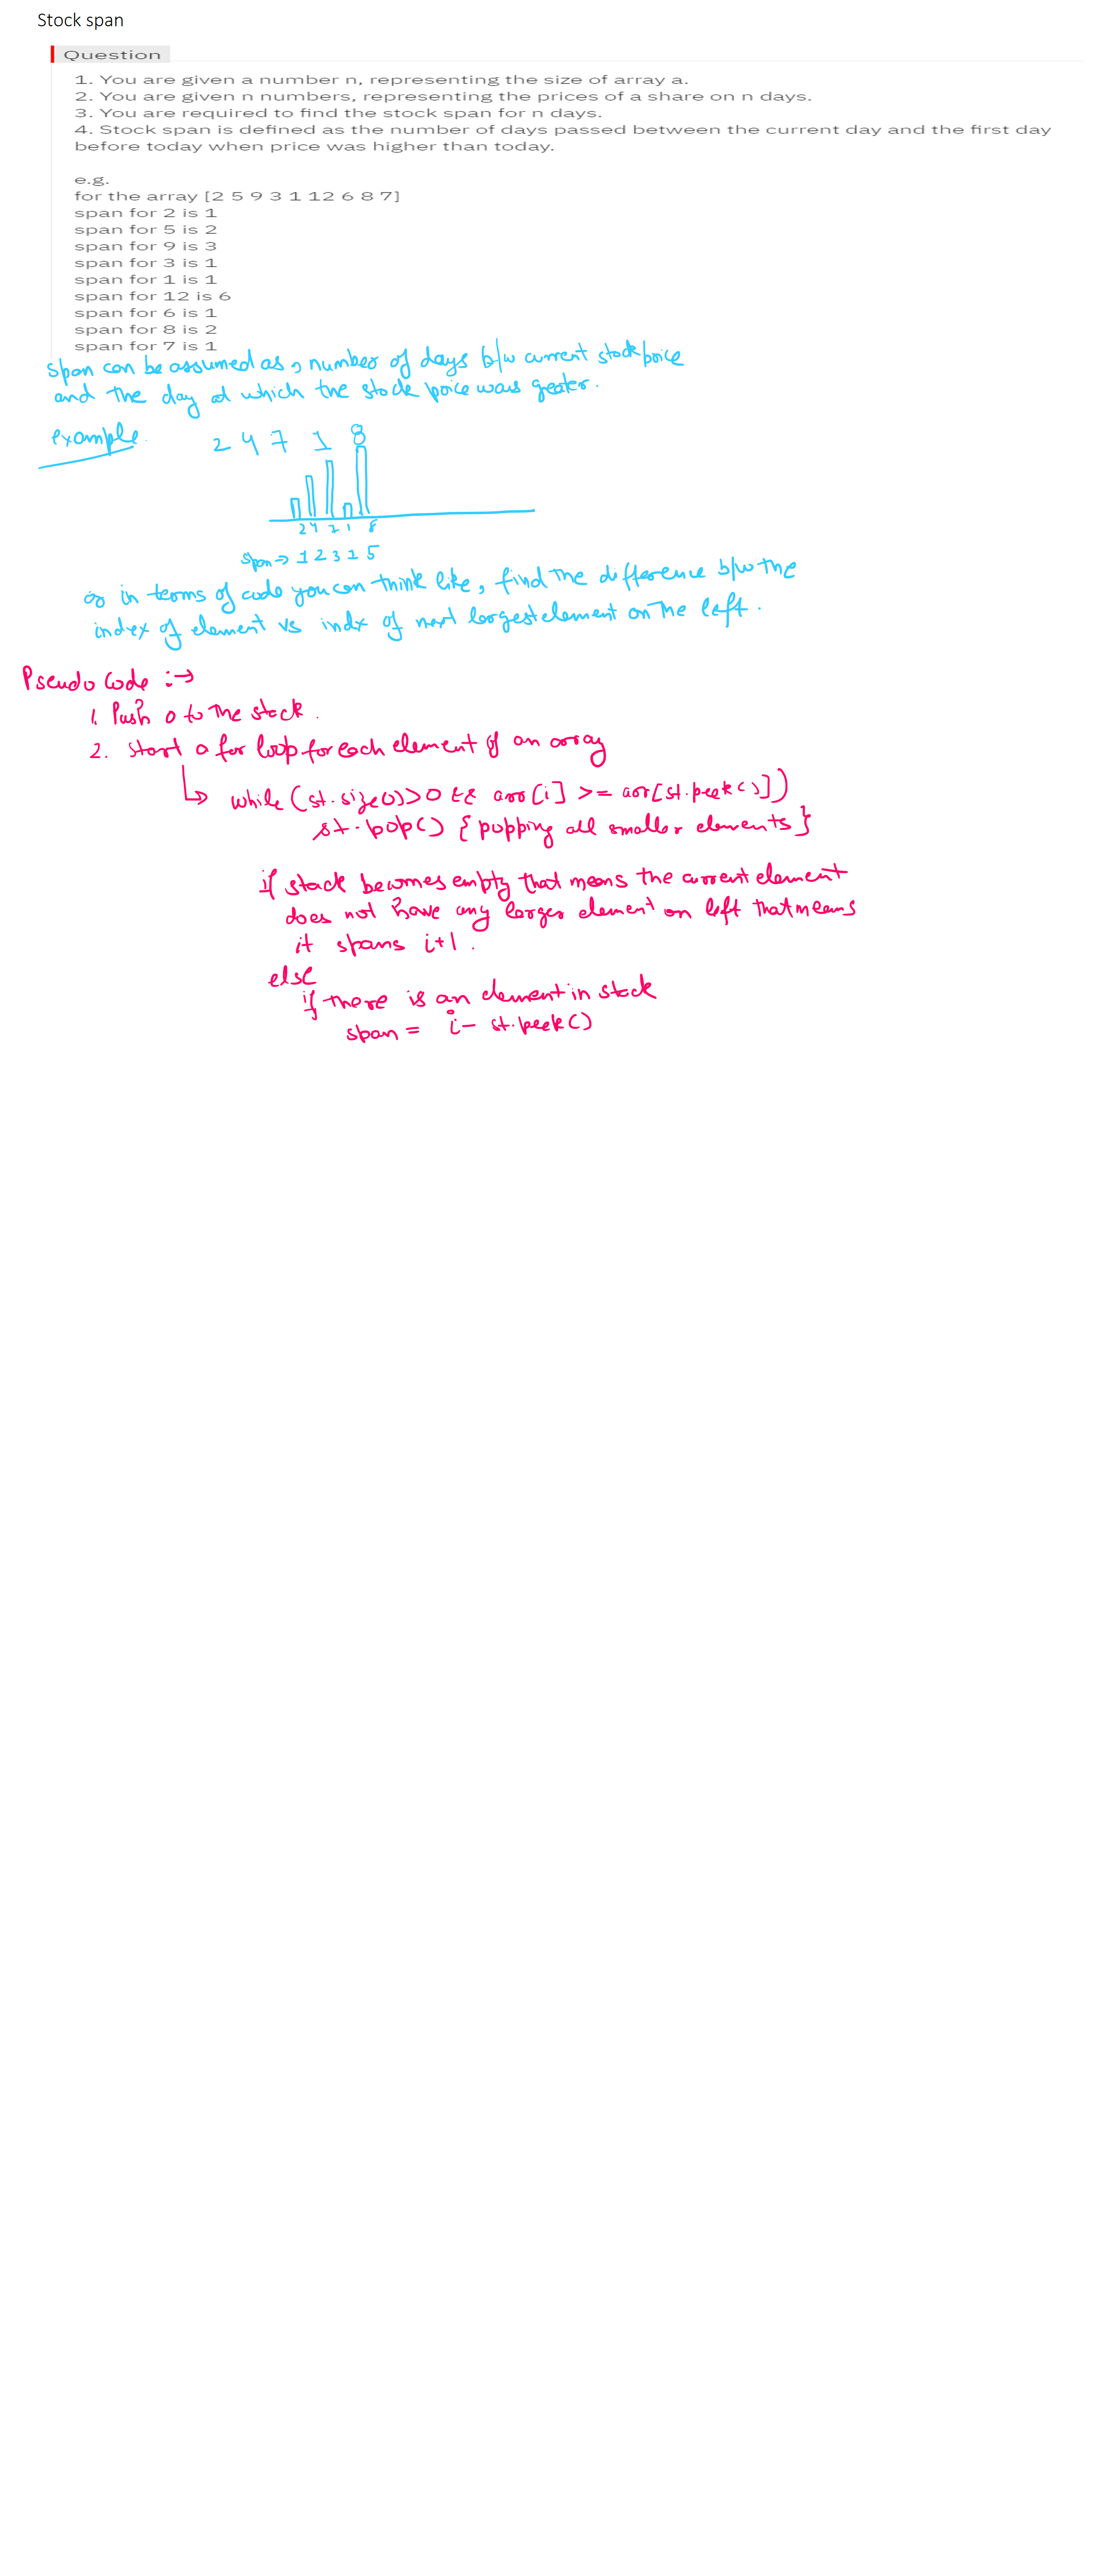 Stock span
Question
1. You are given a number n, representing the size of array a.
2. You are given n numbers, representing the prices of a share on n days.
3. You are required to find the stock span for n days.
4. Stock span is defined as the number of days passed between the current day and the first day
before today when price was higher than today.
e.g.
for the array [2 5 9 3 1 12 6 8 7]
span for 2 is 1
span for 5 is 2
span for 9 is 3
span for 3 is 1
span for 1 is 1
span for 12 is 6
span for 6 is 1
span for 8 is 2
span for 7 is 1
span can be assumed as, number of days b/w current stock price
and the day at which the stock price was greater.
example.
2 4 7 1 8
2 4 7 1 8
span → 1 2 3 1 5
or in terms of code you can think like, find the difference b/w the
index of element vs indx of next largest element on the left.
Pseudo Code :→
1. Push 0 to the stack.
2. Start a for loop for each element of an array
↳ while (st.size()>0 && arr[i] >= arr[st.peek()])
st.pop() {popping all smaller elements}
if stack becomes empty that means the current element
does not have any larger element on left that means
it spans i+1.
else
if there is an element in stack
span = i - st.peek()